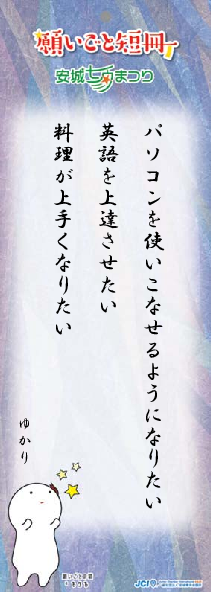 願いごと短冊
安城七夕まつり
パソコンを使いこなせるようになりたい
英語を上達させたい
料理が上手くなりたい
ゆかり
願いごと短冊
JCI